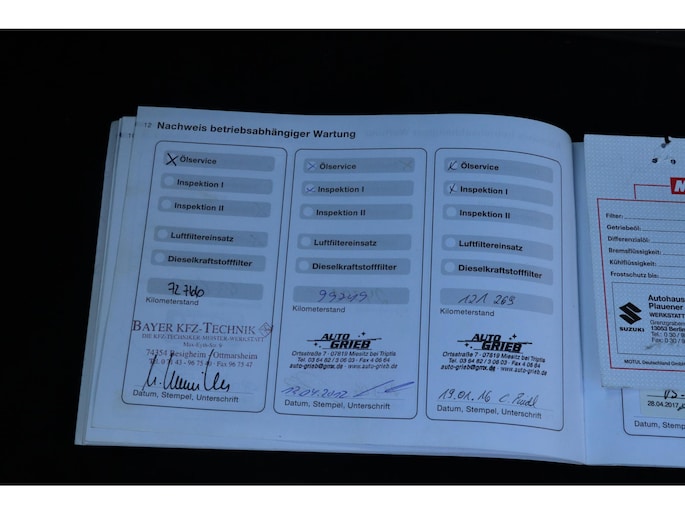 12 Nachweis betriebsabhängiger Wartung
Ölservice
Inspektion I
Inspektion II
Luftfiltereinsatz
Dieselkraftstofffilter
72766
Kilometerstand
BAYER KFZ-TECHNIK
DIE KFZ-TECHNIKER-MEISTER-WERKSTATT
74354 Besigheim/Ottmarsheim
Datum, Stempel, Unterschrift
Ölservice
Inspektion I
Inspektion II
Luftfiltereinsatz
Dieselkraftstofffilter
99299
Kilometerstand
AUTO
GRIEB
Ortsstraße 7 · 07819 Miesitz bei Triptis
Tel. 03 64 82 / 3 06 08 · Fax 4 06 64
auto-grieb@gmx.de · www.auto-grieb.de
Datum, Stempel, Unterschrift
Ölservice
Inspektion I
Inspektion II
Luftfiltereinsatz
Dieselkraftstofffilter
121 263
Kilometerstand
AUTO
GRIEB
Ortsstraße 7 · 07819 Miesitz bei Triptis
Tel. 03 64 82 / 3 06 08 · Fax 4 06 64
auto-grieb@gmx.de · www.auto-grieb.de
19.01.16
Datum, Stempel, Unterschrift
M
Filter:
Getriebeöl:
Differenzialöl:
Bremsflüssigkeit:
Kühlflüssigkeit:
Frostschutz bis:
SUZUKI
Autohaus
Plauener
WERKSTATT
13053 Berlin
Tel.: 0 30 / 9
Fax: 0 30 / 9
MOTUL Deutschland GmbH
28.04.2017
Datum, Stem